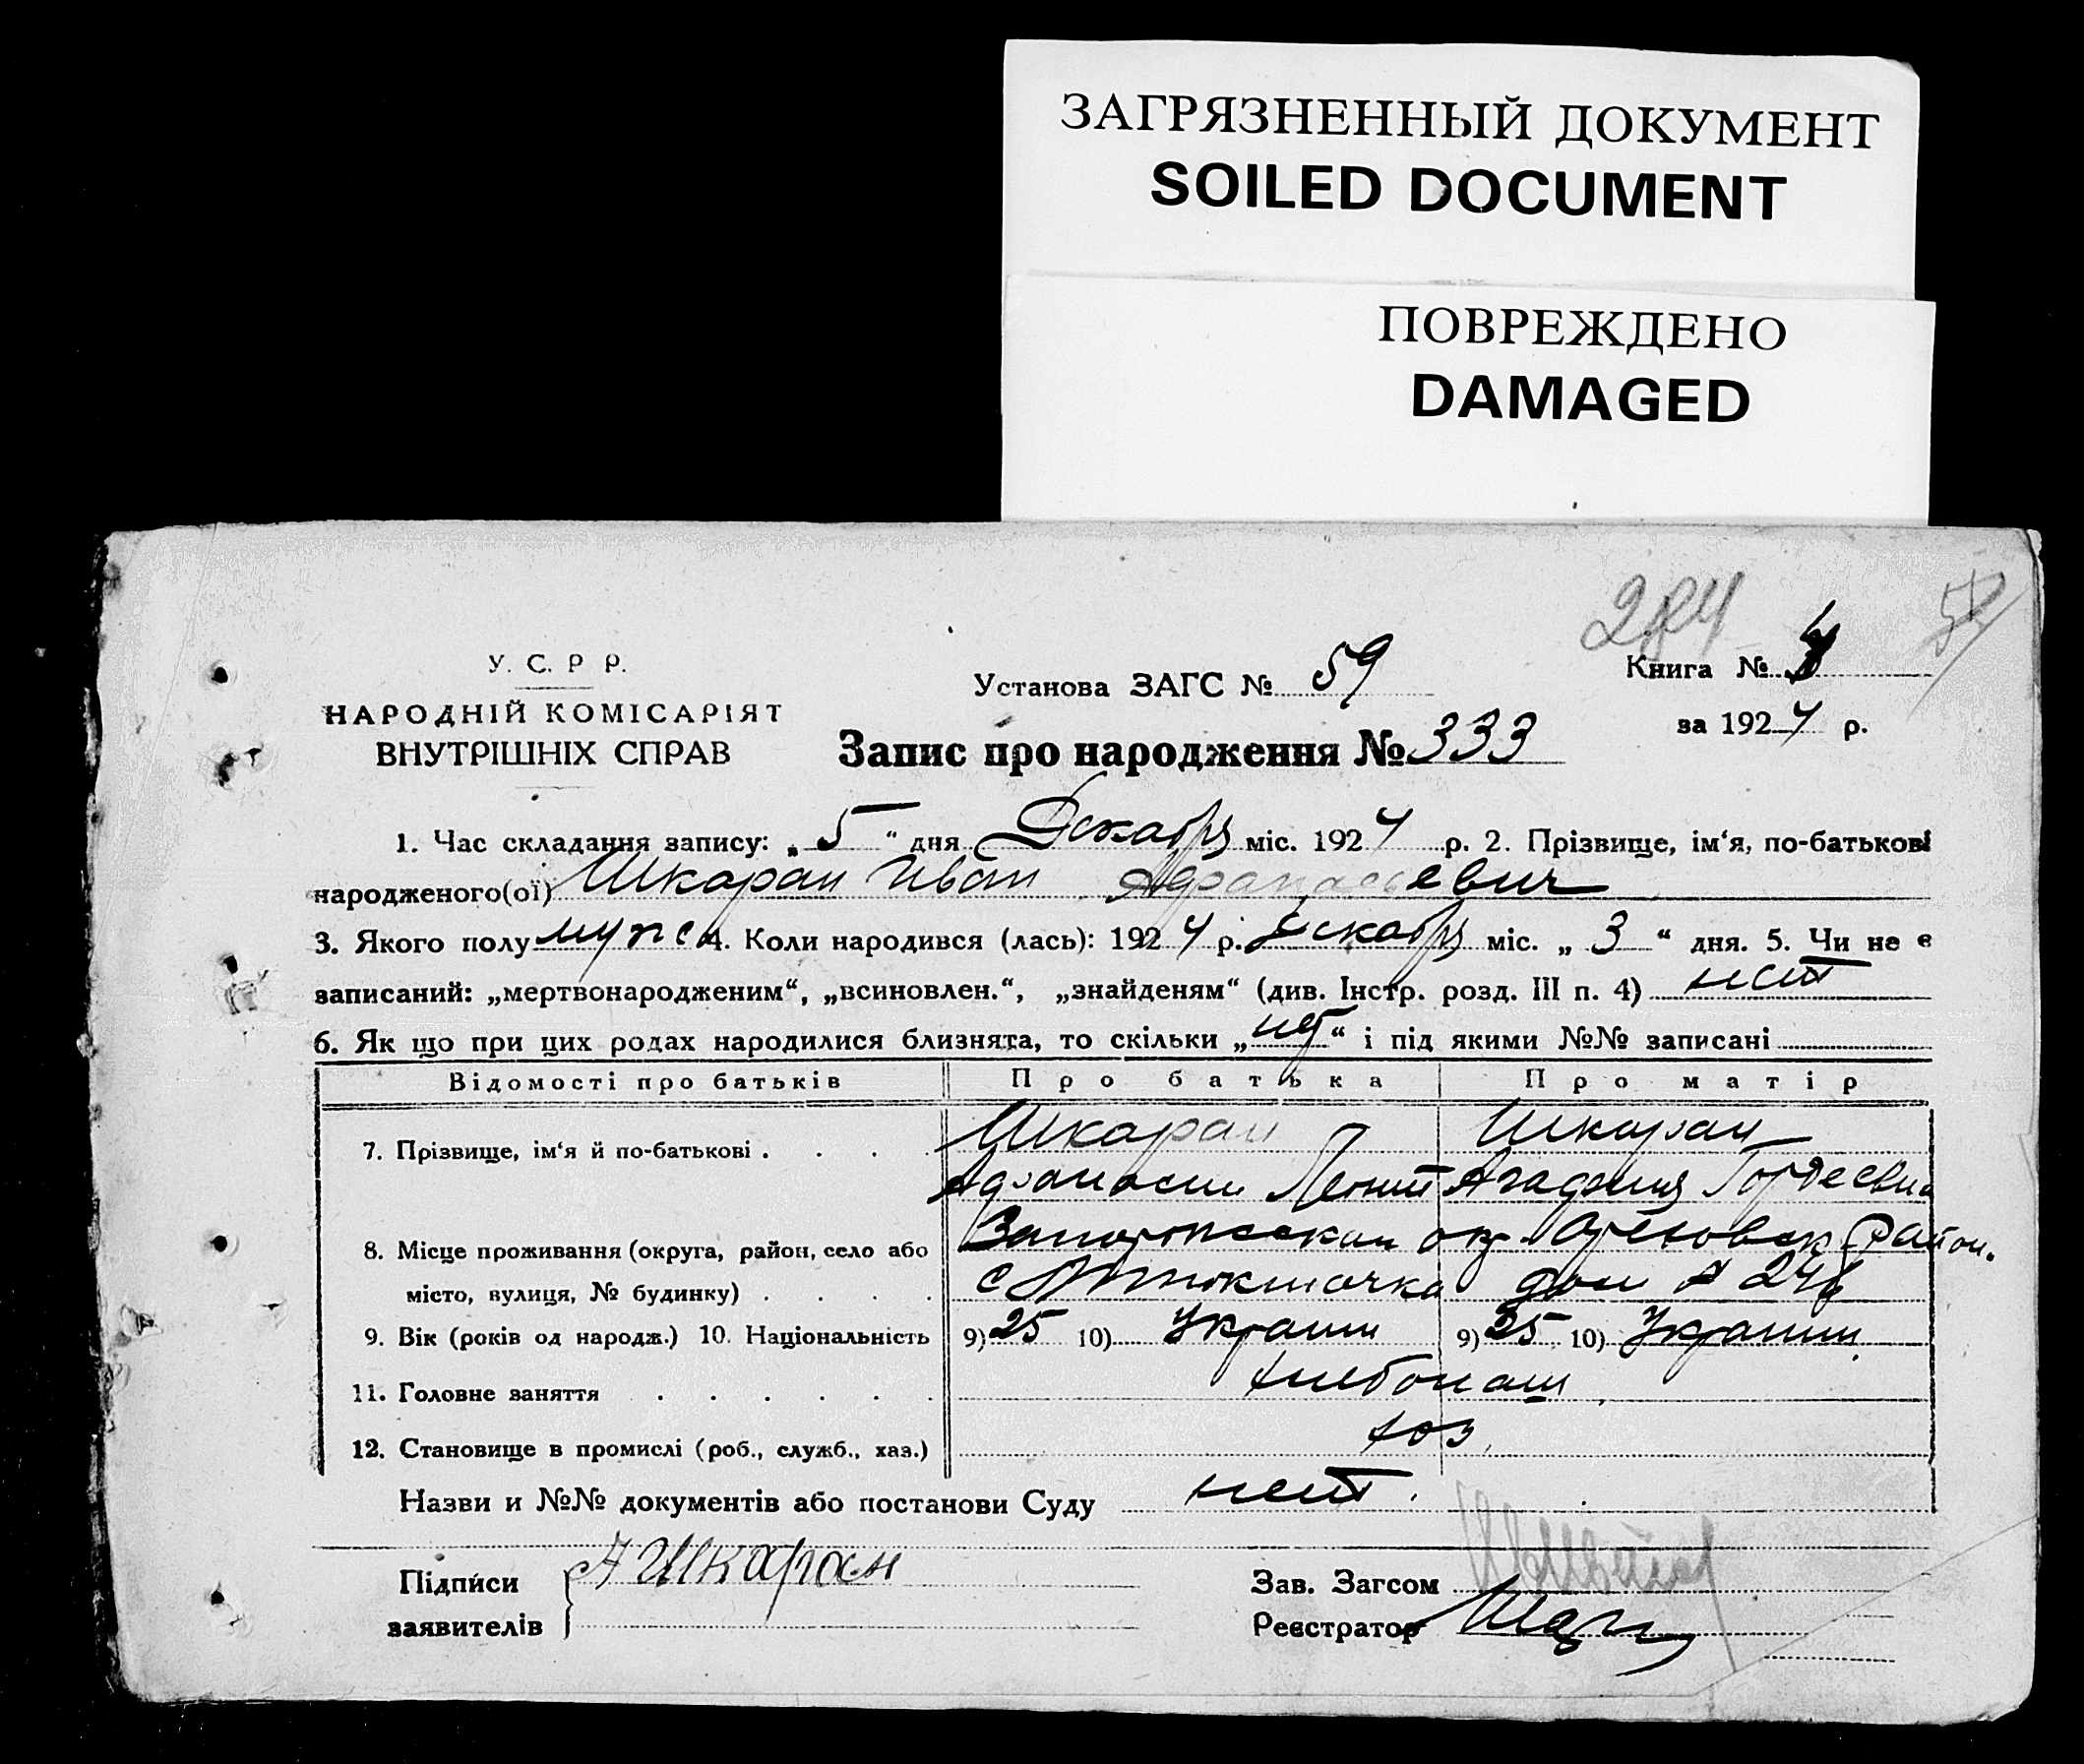 ЗАГРЯЗНЕННЫЙ ДОКУМЕНТ
SOILED DOCUMENT
ПОВРЕЖДЕНО
DAMAGED
У. С. Р Р.
НАРОДНІЙ КОМІСАРІЯТ
ВНУТРІШНІХ СПРАВ
Установа ЗАГС № 59
Книга №
за 1924 р.
Запис про народження № 333
1. Час складання запису: „5“ дня Декабря міс. 1924 р. 2. Прізвище, ім‘я, по-батькові
народженого(ої) Шкаран Иван Афанасьевич
3. Якого полу мужс 4. Коли народився (лась): 1924 р. Декабря міс. „3“ дня. 5. Чи не є
записаний: „мертвонародженим“, „всиновлен.“, „знайденям“ (див. Інстр. розд. III п. 4) нет
6. Як що при цих родах народилися близнята, то скільки „нет“ і під якими №№ записані
Відомості про батьків Про батька Про матір
7. Прізвище, ім‘я й по-батькові . Шкаран Шкаран
Афанасии Агафия Гордеевна
8. Місце проживання (округа, район, село або Запорожская окр. Ореховск район.
місто, вулиця, № будинку) . с дом № 246
9. Вік (років од народж.) 10. Національність 9) 25 10) Украин 9) 25 10) Украин
11. Головне заняття хлебопаш
12. Становище в промислі (роб., служб., хаз.) хоз
Назви и №№ документів або постанови Суду нет.
Підписи А Шкаран
заявителів
Зав. Загсом
Реєстратор